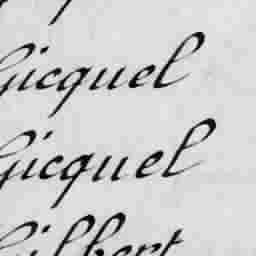 Gicquel
Gicquel
Gilbert